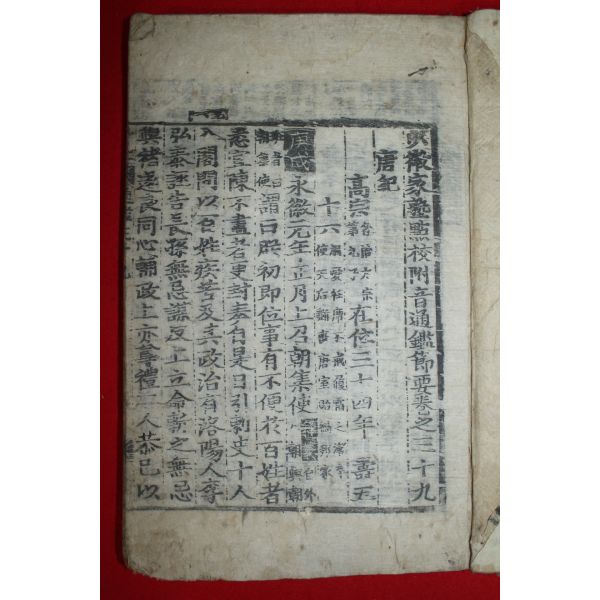 興徽家塾點校附音通鑑節要卷之三十九
唐紀
高宗 在位三十四年 壽五
十六
永徽元年正月上召朝集使
謂曰朕初即位事有不便於百姓者
悉宜陳不盡者更封奏自是日引刺史十人
入閤問以百姓疾苦及其政治有洛陽人李
弘泰誣告長孫無忌謀反上立命斬之無忌
與褚遂良同心輔政上亦尊禮二人恭己以